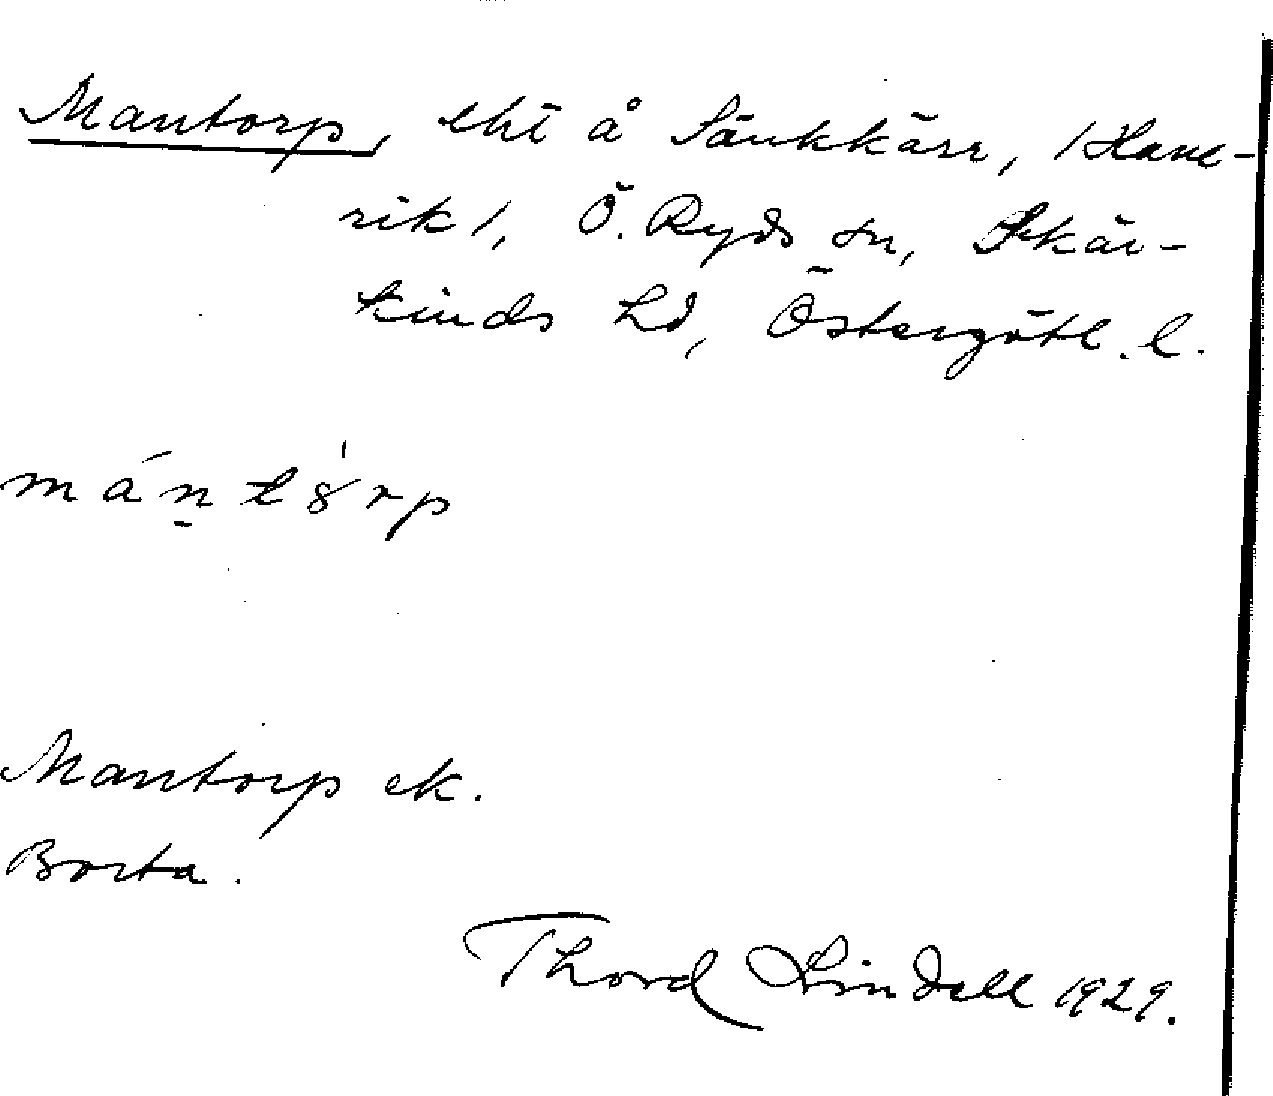 Mantorp, lht å Sänkkärr, /Hane-
rik/, Ö. Ryds sn, Skär-
kinds hd, Östergötl. l.
mántórp
Mantorp ek.
Borta.
Thord Lindell 1929.